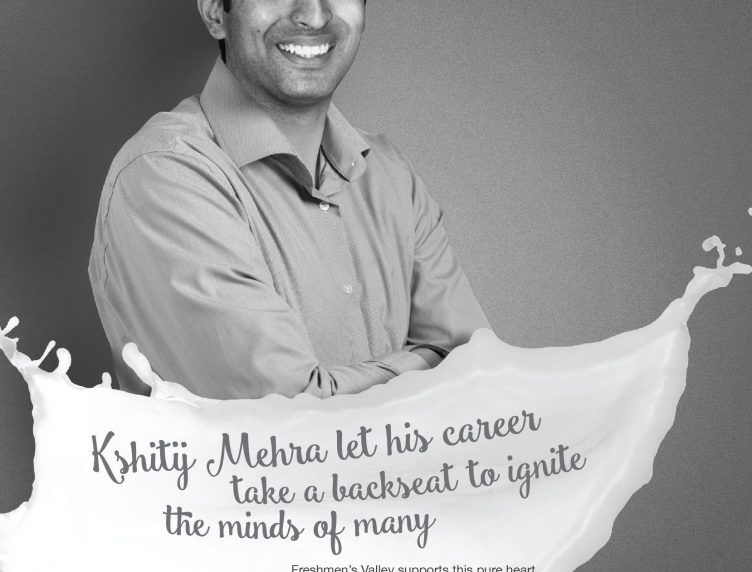 Kshitij Mehra let his career
take a backseat to ignite
the minds of many
Freshmen's Valley supports this pure heart